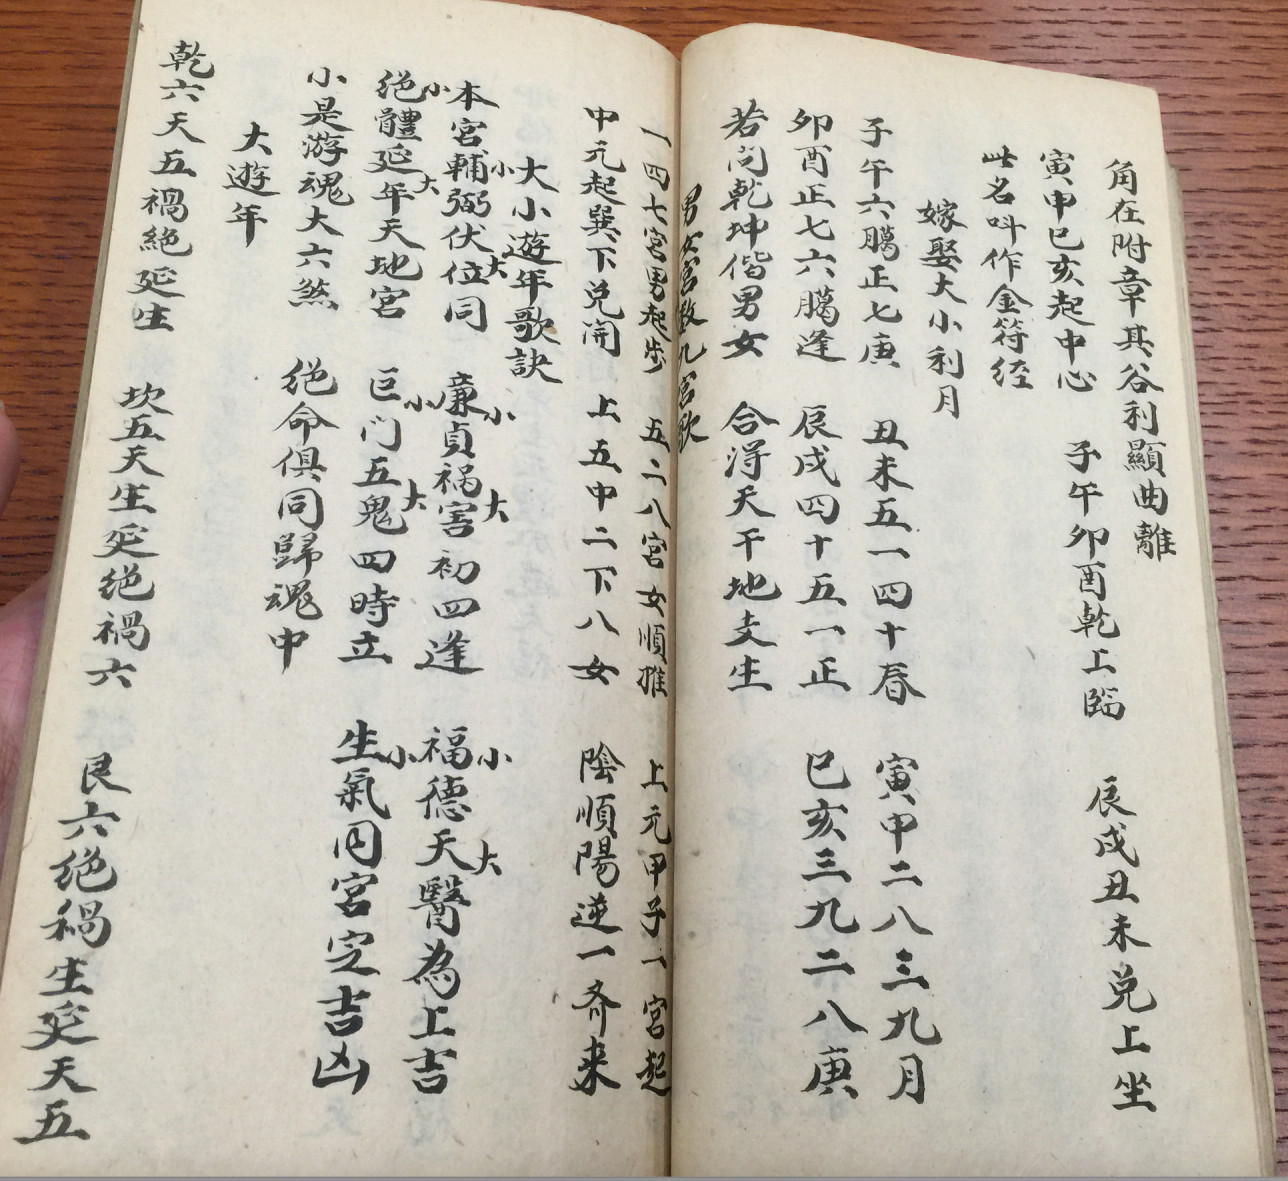 角在附章其谷利顯曲離
寅申巳亥起中心 子午卯酉乾上臨 辰戌丑未兑上坐
此名呌作金符经
嫁娶大小利月
子午六臈正七庚 丑未五一四十春 寅申二八三九月
卯酉正七六臈逢 辰戌四十五一正 巳亥三九二八庚
若问乾坤偕男女 合淂天干地支生
男女宫数九宫歌
一四七宫男起步 五二八宫女順推 上元甲子一宫起
中元起巽下兑開 上五中二下八女 陰順陽逆一齐来
大小遊年歌訣
本宮輔弼伏位同 廉貞祸害初四逢 福德天醫為上吉
小 大 小 大 小 大
绝體延年天地宮 巨门五鬼四時立 生氣同宮定吉凶
小 大 小 大 小
小是游魂大六煞 绝命俱同歸魂中
大遊年
乾六天五禍絶延生 坎五天生延绝禍六 艮六绝禍生延天五